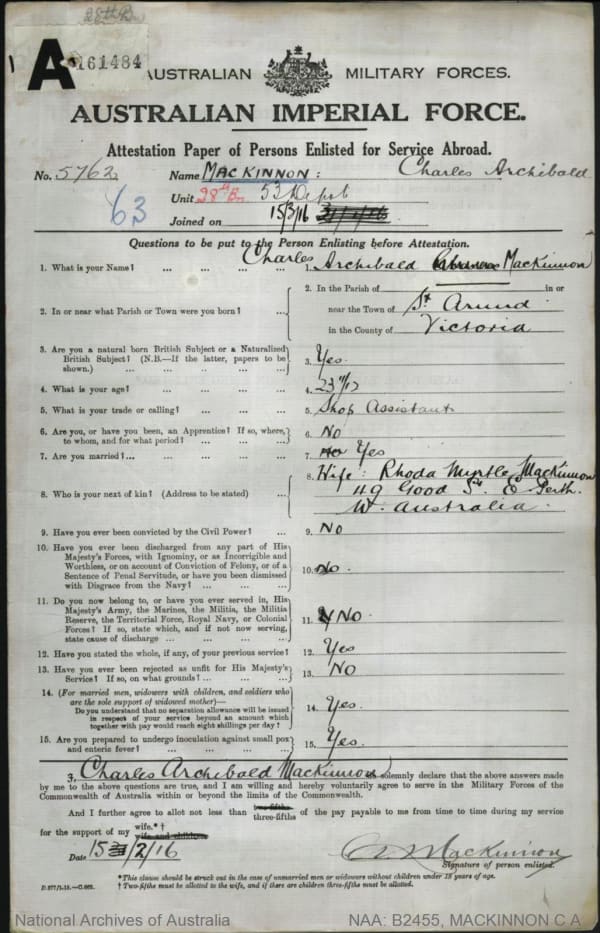 28th B
A 161484
AUSTRALIAN MILITARY FORCES.
AUSTRALIAN IMPERIAL FORCE.
Attestation Paper of Persons Enlisted for Service Abroad.
No. 5762 Name MACKINNON: Charles Archibald
63 Unit 28th Bn 53 Depot
Joined on 15/3/16
Questions to be put to the Person Enlisting before Attestation.
1. What is your Name? ... ... ... 1. Charles Archibald MacKinnon
2. In or near what Parish or Town were you born? ... 2. In the Parish of in or
near the Town of St Arnud
in the County of Victoria
3. Are you a natural born British Subject or a Naturalized
British Subject? (N.B.—If the latter, papers to be
shown.) ... ... ... ... 3. Yes.
4. What is your age? ... ... ... 4. 23
5. What is your trade or calling? ... ... 5. Shop Assistant
6. Are you, or have you been, an Apprentice? If so, where,
to whom, and for what period? ... ... 6. No
7. Are you married? ... ... ... 7. No Yes
8. Who is your next of kin? (Address to be stated) ... 8. Wife: Rhoda Myrtle MacKinnon
119 Good St. E. Perth.
W. Australia.
9. Have you ever been convicted by the Civil Power? ... 9. No
10. Have you ever been discharged from any part of His
Majesty's Forces, with Ignominy, or as Incorrigible and
Worthless, or on account of Conviction of Felony, or of a
Sentence of Penal Servitude, or have you been dismissed
with Disgrace from the Navy? ... ... 10. No.
11. Do you now belong to, or have you ever served in, His
Majesty's Army, the Marines, the Militia, the Militia
Reserve, the Territorial Force, Royal Navy, or Colonial
Forces? If so, state which, and if not now serving,
state cause of discharge ... ... ... 11. No.
12. Have you stated the whole, if any, of your previous service? 12. Yes
13. Have you ever been rejected as unfit for His Majesty's
Service? If so, on what grounds? ... ... 13. No
14. (For married men, widowers with children, and soldiers who
are the sole support of widowed mother)—
Do you understand that no separation allowance will be issued
in respect of your service beyond an amount which
together with pay would reach eight shillings per day? 14. Yes.
15. Are you prepared to undergo inoculation against small pox
and enteric fever? ... ... ... 15. Yes.
I, Charles Archibald MacKinnon do solemnly declare that the above answers made
by me to the above questions are true, and I am willing and hereby voluntarily agree to serve in the Military Forces of the
Commonwealth of Australia within or beyond the limits of the Commonwealth.
And I further agree to allot not less than two-fifths three-fifths of the pay payable to me from time to time during my service
for the support of my wife.*† wife and children
Date 15/2/16 C A MacKinnon
Signature of person enlisted.
*This clause should be struck out in the case of unmarried men or widowers without children under 18 years of age.
† Two-fifths must be allotted to the wife, and if there are children three-fifths must be allotted.
National Archives of Australia NAA: B2455, MACKINNON C A